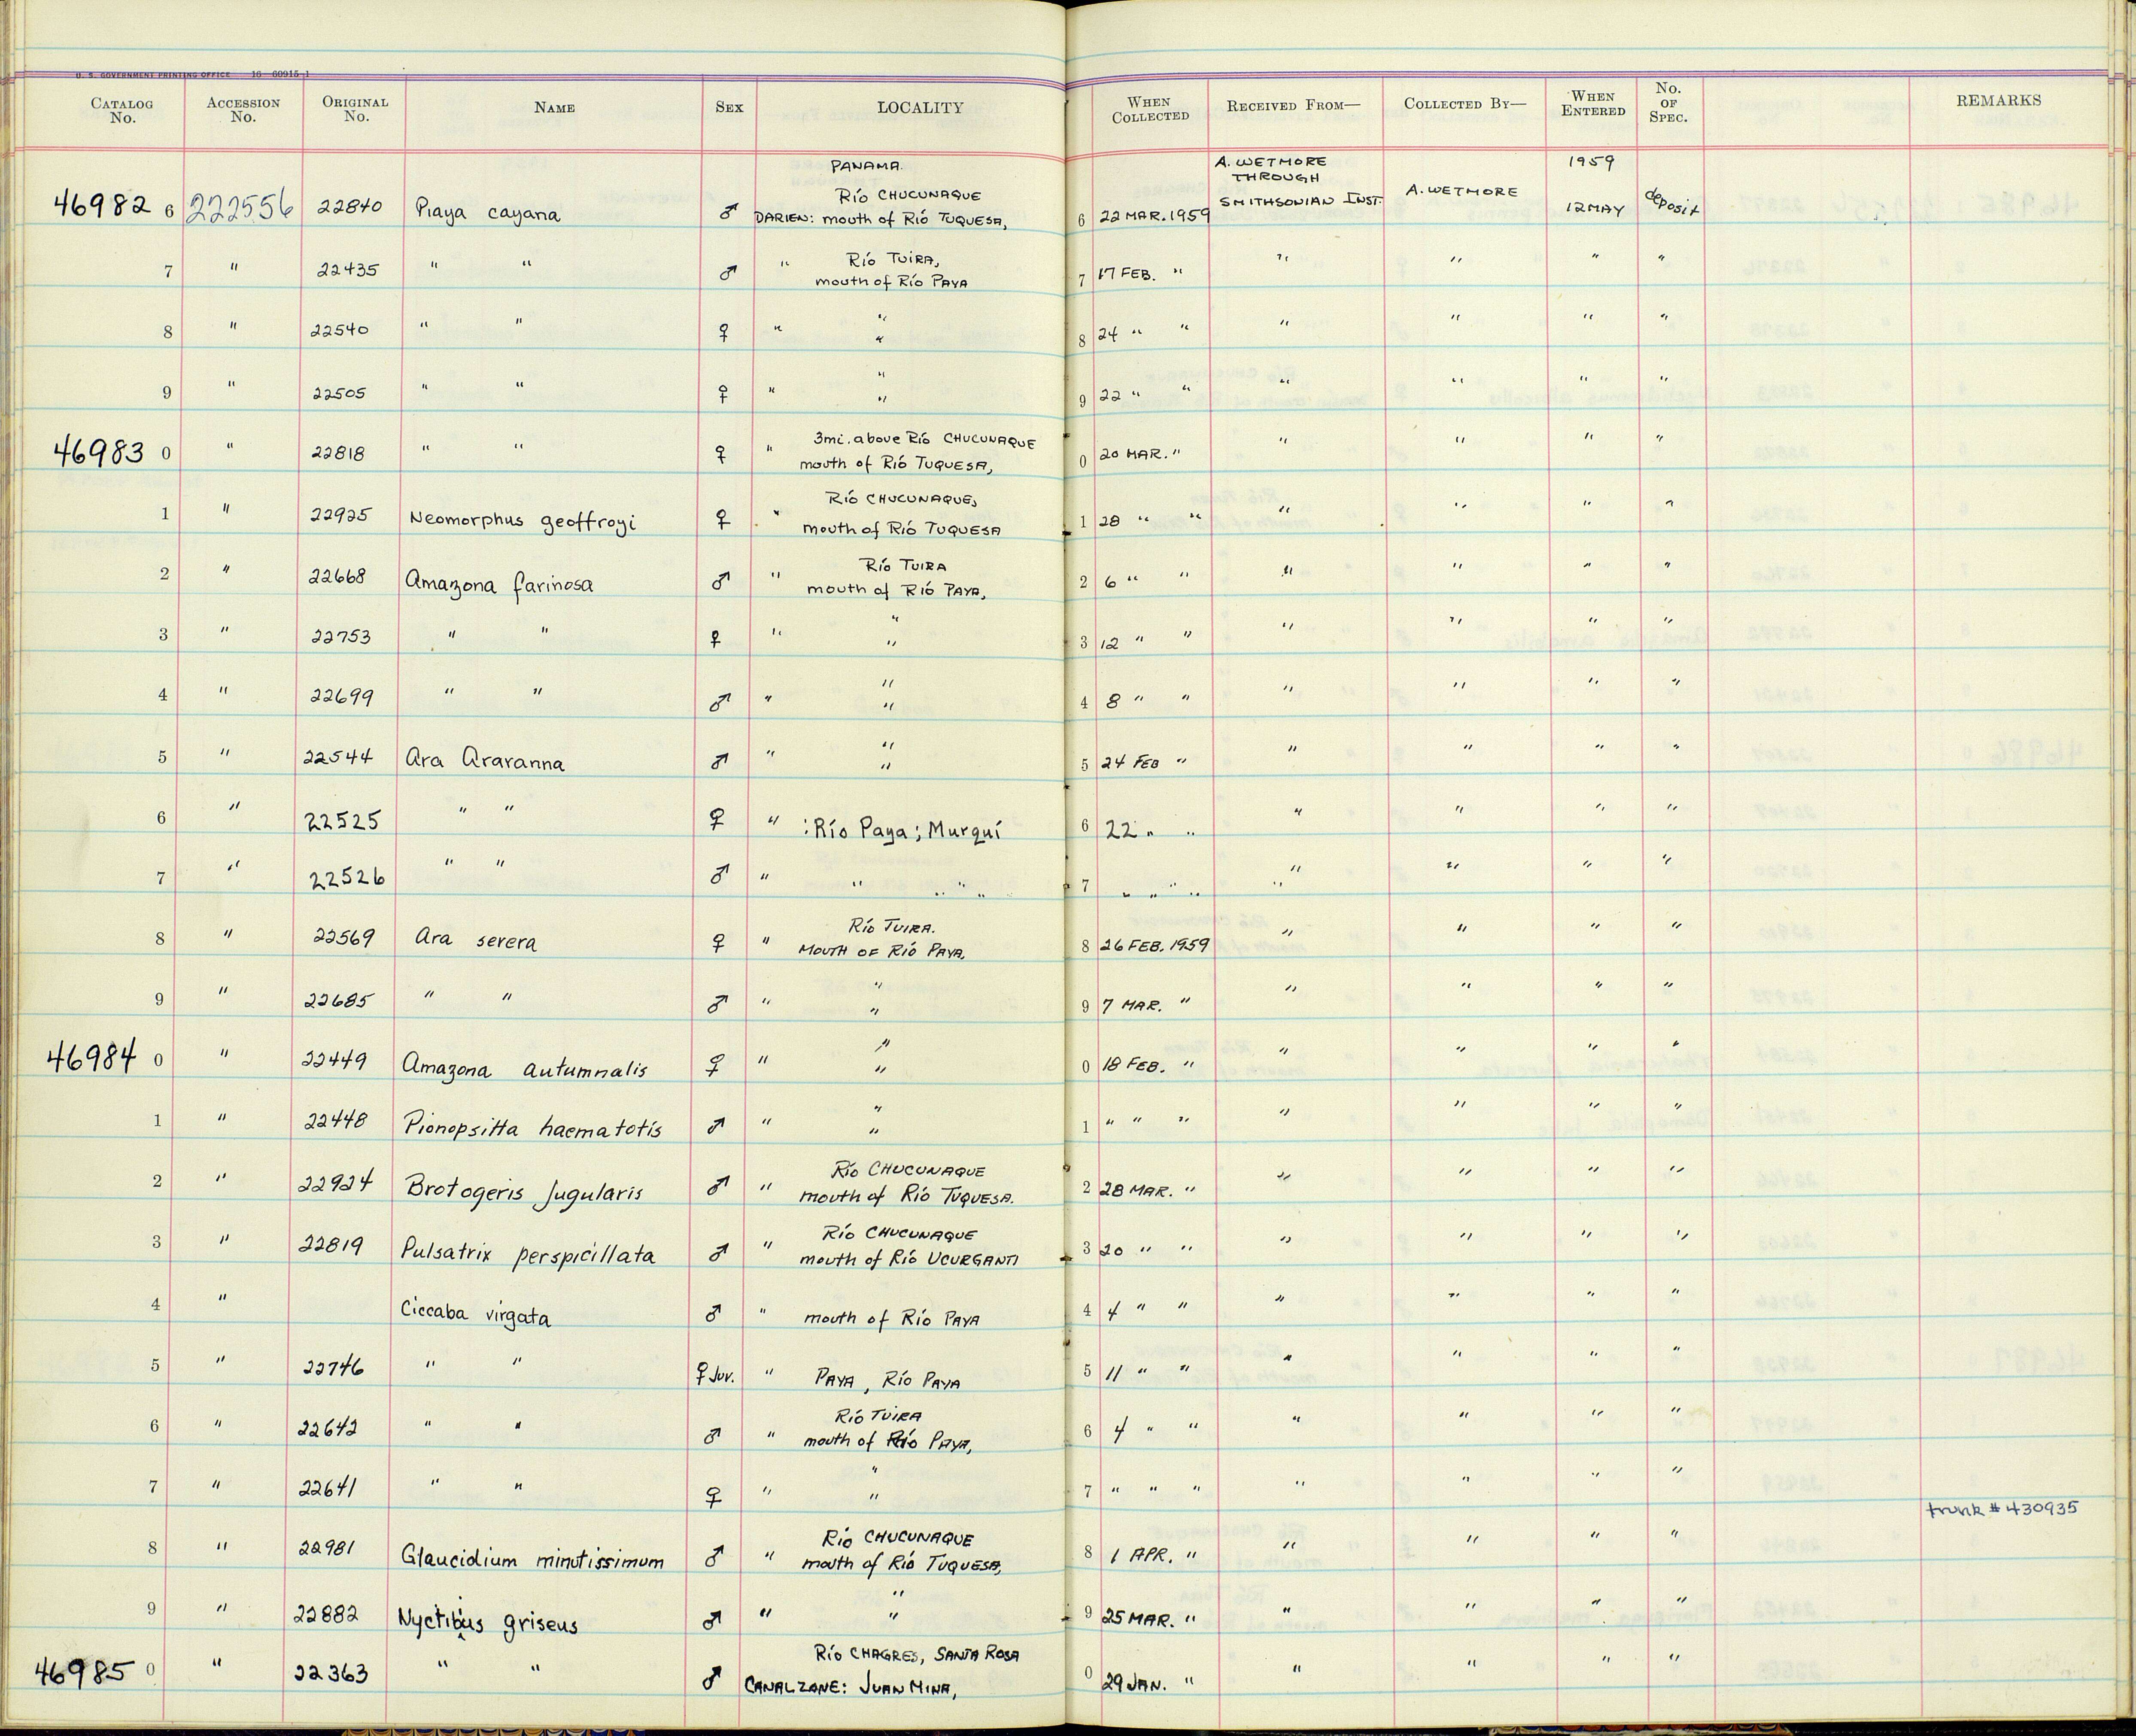 U. S. GOVERNMENT PRINTING OFFICE 16—60915-1
CATALOG No. ACCESSION No. ORIGINAL No. NAME SEX LOCALITY WHEN COLLECTED RECEIVED FROM— COLLECTED BY— WHEN ENTERED No. OF SPEC. REMARKS
PANAMA. A. WETMORE 1959
RÍO CHUCUNAQUE THROUGH
46982 6 222556 22840 Piaya cayana ♂ DARIEN: mouth of RÍO TUQUESA, 6 22 MAR. 1959 SMITHSONIAN INST. A. WETMORE 12 MAY deposit
RÍO TUIRA,
7 " 22435 " " ♂ " mouth of RÍO PAYA 7 17 FEB. " " " " "
"
8 " 22540 " " ♀ " " 8 24 " " " " " "
"
9 " 22505 " " ♀ " " 9 22 " " " " " "
3mi. above RÍO CHUCUNAQUE
46983 0 " 22818 " " ♀ " mouth of RÍO TUQUESA, 0 20 MAR. " " " " "
RÍO CHUCUNAQUE,
1 " 22925 Neomorphus geoffroyi ♀ " mouth of RÍO TUQUESA 1 28 " " " " " "
RÍO TUIRA
2 " 22668 Amazona farinosa ♂ " mouth of RÍO PAYA, 2 6 " " " " " "
"
3 " 22753 " " ♀ " " 3 12 " " " " " "
"
4 " 22699 " " ♂ " " 4 8 " " " " " "
"
5 " 22544 Ara Araranna ♂ " " 5 24 FEB " " " " "
6 " 22525 " " ♀ " : Río Paya; Murquí 6 22 " " " " " "
7 " 22526 " " ♂ " " " " " 7 " " " " " " " "
RÍO TUIRA.
8 " 22569 Ara severa ♀ " MOUTH OF RÍO PAYA, 8 26 FEB. 1959 " " " "
"
9 " 22685 " " ♂ " " 9 7 MAR. " " " " "
"
46984 0 " 22449 Amazona autumnalis ♀ " " 0 18 FEB. " " " " "
"
1 " 22448 Pionopsitta haematotis ♂ " " 1 " " " " " " "
RÍO CHUCUNAQUE
2 " 22924 Brotogeris jugularis ♂ " mouth of RÍO TUQUESA. 2 28 MAR. " " " " "
RÍO CHUCUNAQUE
3 " 22819 Pulsatrix perspicillata ♂ " mouth of RÍO UCURGANTI 3 20 " " " " " "
4 " Ciccaba virgata ♂ " mouth of RÍO PAYA 4 4 " " " " " "
5 " 22746 " " ♀ Juv. " PAYA, RÍO PAYA 5 11 " " " " " "
RÍO TUIRA
6 " 22642 " " ♂ " mouth of RÍO PAYA, 6 4 " " " " " "
"
7 " 22641 " " ♀ " " 7 " " " " " " "
trunk # 430935
RÍO CHUCUNAQUE
8 " 22981 Glaucidium minutissimum ♂ " mouth of RÍO TUQUESA, 8 1 APR. " " " " "
"
9 " 22882 Nyctibius griseus ♂ " " 9 25 MAR. " " " " "
RÍO CHAGRES, SANTA ROSA
46985 0 " 22363 " " ♂ CANAL ZONE: JUAN MINA, 0 29 JAN. " " " " "